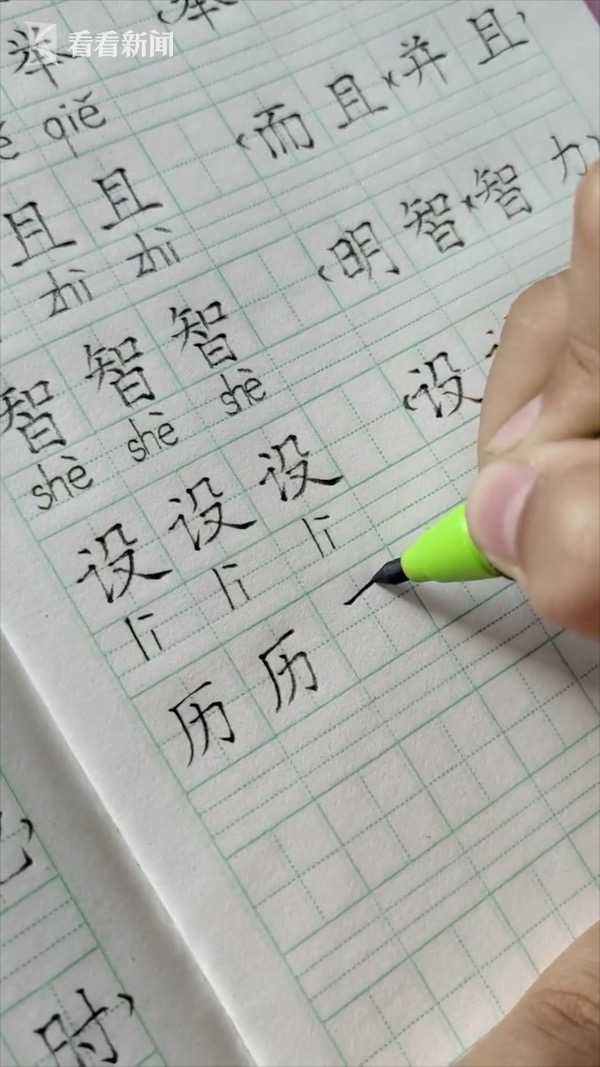 看看新闻
举 举
qiě
且 且 (而且×并且)
zhì zhì
智 智 智 (明智×智力)
shè shè shè
设 设 设 (设
lì lì lì
历 历 一
时)